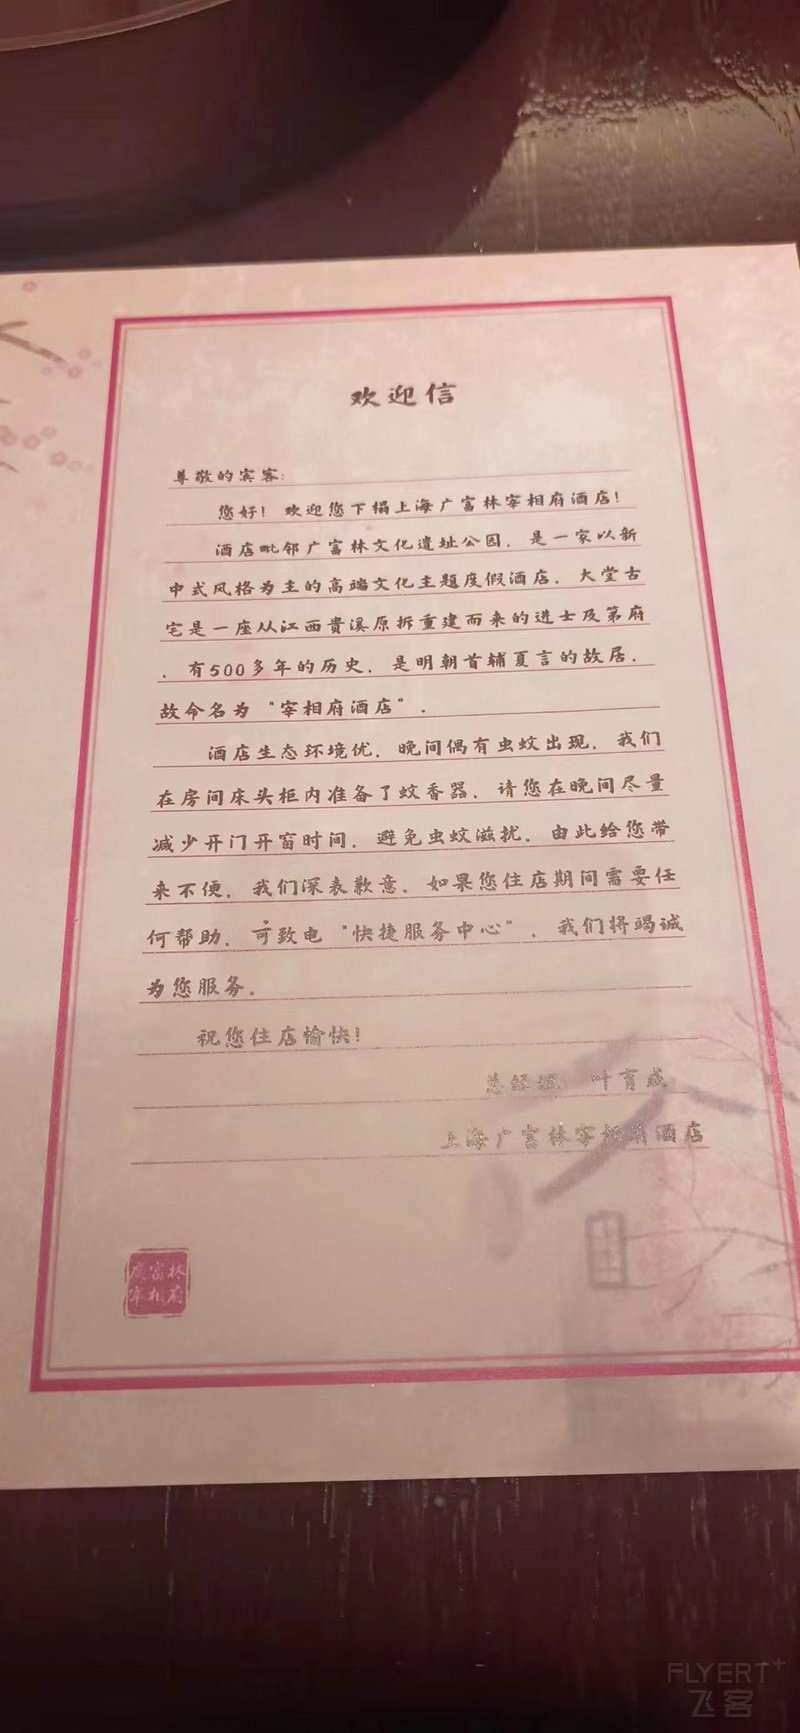 欢迎信
尊敬的宾客:
您好! 欢迎您下榻上海广富林宰相府酒店!
酒店毗邻广富林文化遗址公园，是一家以新
中式风格为主的高端文化主题度假酒店，大堂古
宅是一座从江西贵溪原拆重建而来的进士及第府
，有500多年的历史，是明朝首辅夏言的故居，
故命名为“宰相府酒店”。
酒店生态环境优，晚间偶有虫蚊出现，我们
在房间床头柜内准备了蚊香器，请您在晚间尽量
减少开门开窗时间，避免虫蚊滋扰，由此给您带
来不便，我们深表歉意。如果您住店期间需要任
何帮助，可致电“快捷服务中心”，我们将竭诚
为您服务。
祝您住店愉快!
总经理: 叶育成
上海广富林宰相府酒店
廣富林
宰相府
FLYERT+
飞客